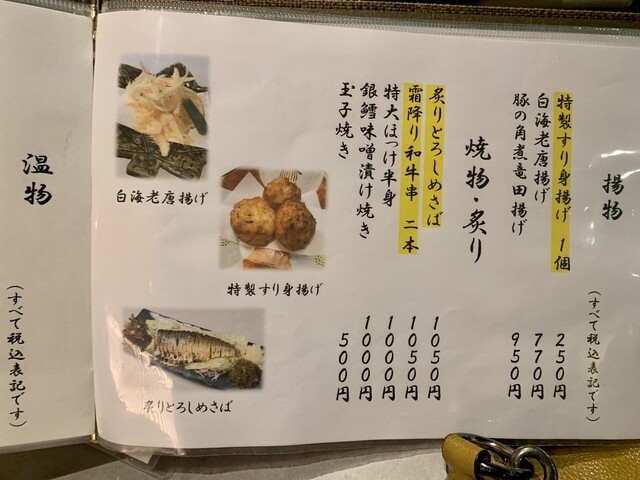 揚物
(すべて税込表記です)
特製すり身揚げ 1個 250円
白海老唐揚げ 770円
豚の角煮竜田揚げ 950円
焼物・炙り
炙りとろしめさば 1050円
霜降り和牛串 二本 1050円
特大ほっけ半身 1000円
銀鱈味噌漬け焼き 1000円
玉子焼き 500円
白海老唐揚げ
特製すり身揚げ
炙りとろしめさば
温物
(すべて税込表記です)